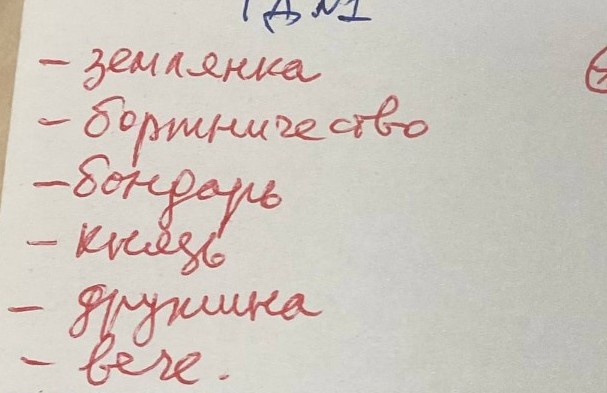 ТД №1
- землянка
- бортничество
- бондарь
- князь
- дружина
- вече.